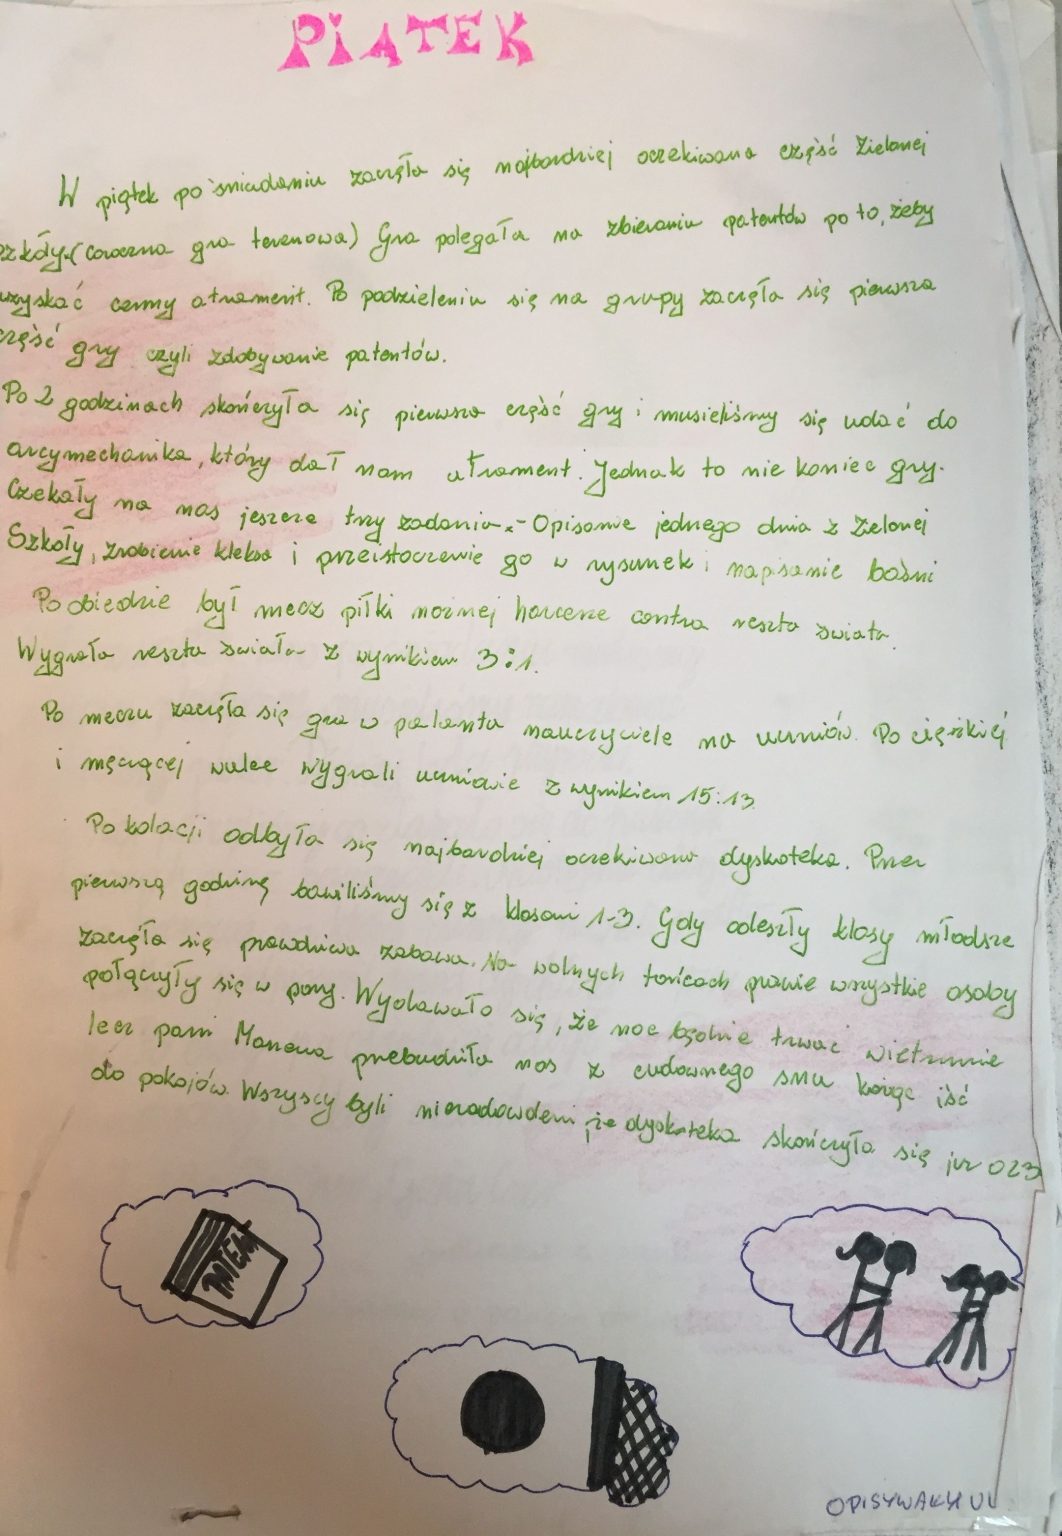 PIĄTEK
W piątek po śniadaniu zaczęła się najbardziej oczekiwana część Zielonej
szkoły (coroczna gra terenowa) Gra polegała na zbieraniu patentów po to, żeby
uzyskać cenny atrament. Po podzieleniu się na grupy zaczęła się pierwsza
część gry czyli zdobywanie patentów.
Po 2 godzinach skończyła się pierwsza część gry i musieliśmy się udać do
arcymechanika, który dał nam atrament. Jednak to nie koniec gry.
Czekały na nas jeszcze trzy zadania - Opisanie jednego dnia z Zielonej
Szkoły, zrobienie kleksa i przeistoczenie go w rysunek i napisanie baśni
Po obiedzie był mecz piłki nożnej harcerze contra reszta świata.
Wygrała reszta świata z wynikiem 3:1.
Po meczu zaczęła się gra w palanta nauczyciele na uczniów. Po ciężkiej
i męczącej walce wygrali uczniowie z wynikiem 15:13
Po kolacji odbyła się najbardziej oczekiwana dyskoteka. Przez
pierwszą godzinę bawiliśmy się z klasami 1-3. Gdy odeszły klasy młodsze
zaczęła się prawdziwa zabawa. Na wolnych tańcach prawie wszystkie osoby
połączyły się w pary. Wydawało się, że noc będzie trwać wiecznie
lecz pani przebudziła nas z cudownego snu każąc iść
do pokojów. Wszyscy byli niezadowoleni że dyskoteka skończyła się już o 23
PATENT
OPISYWAŁY UL